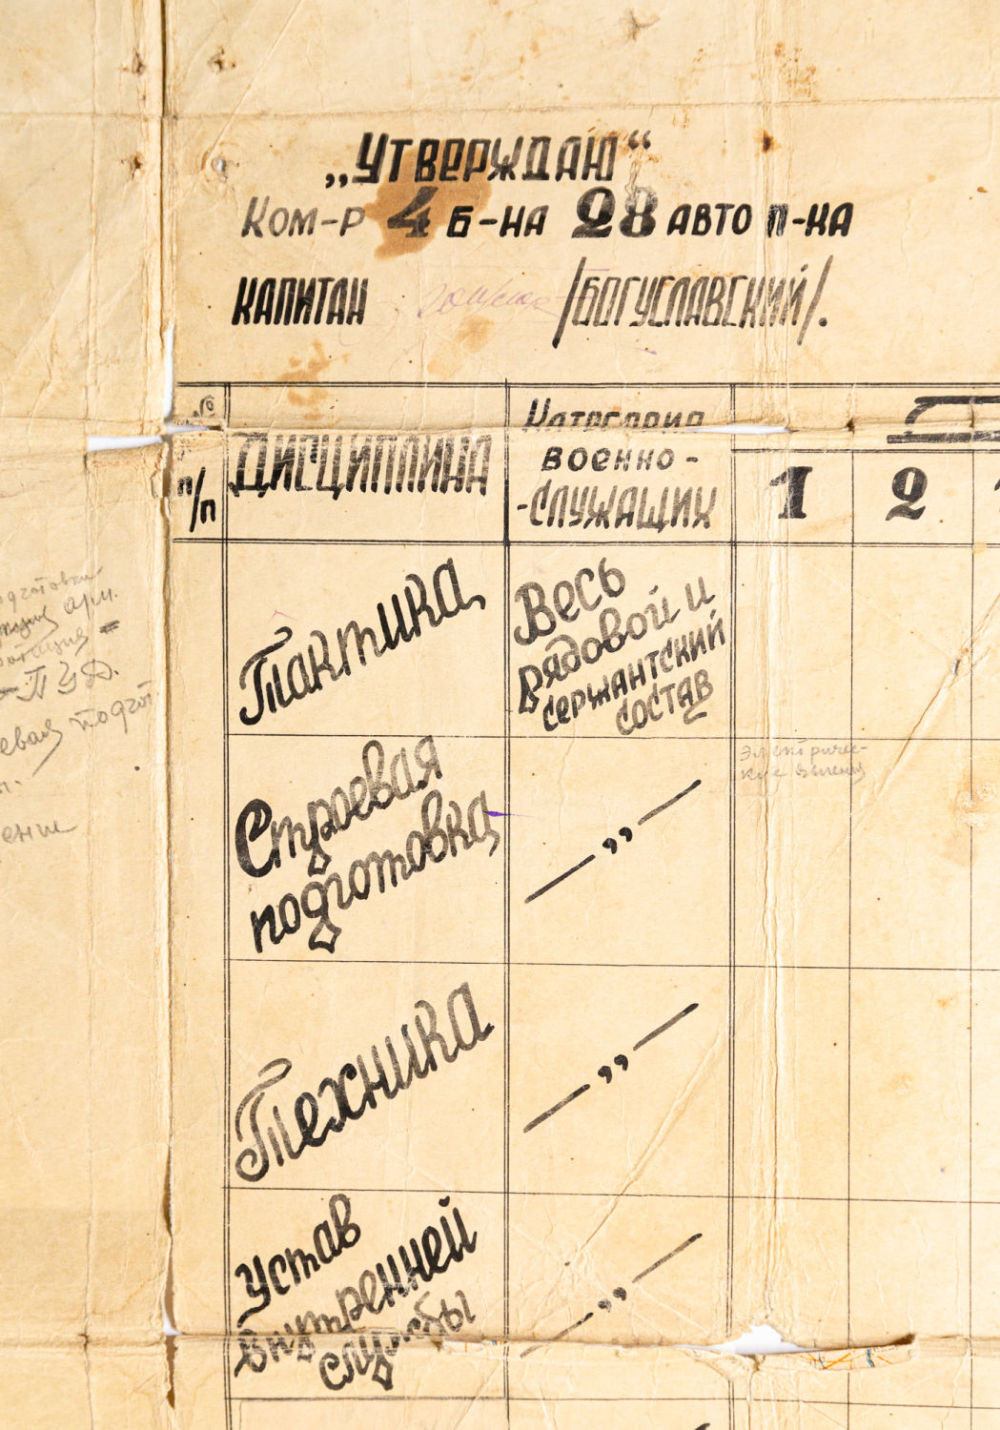 „Утверждаю“
Ком-р 4 б-на 28 авто п-ка
капитан /Богуславский/.
№ п/п
Дисциплина
Категория
военно-
-служащих
1 2
Тактика
Весь
рядовой и
сержантский
состав
Строевая
подготовка
— „ —
Электричес-
кие явления
Техника
— „ —
Устав
внутренней
службы
— „ —